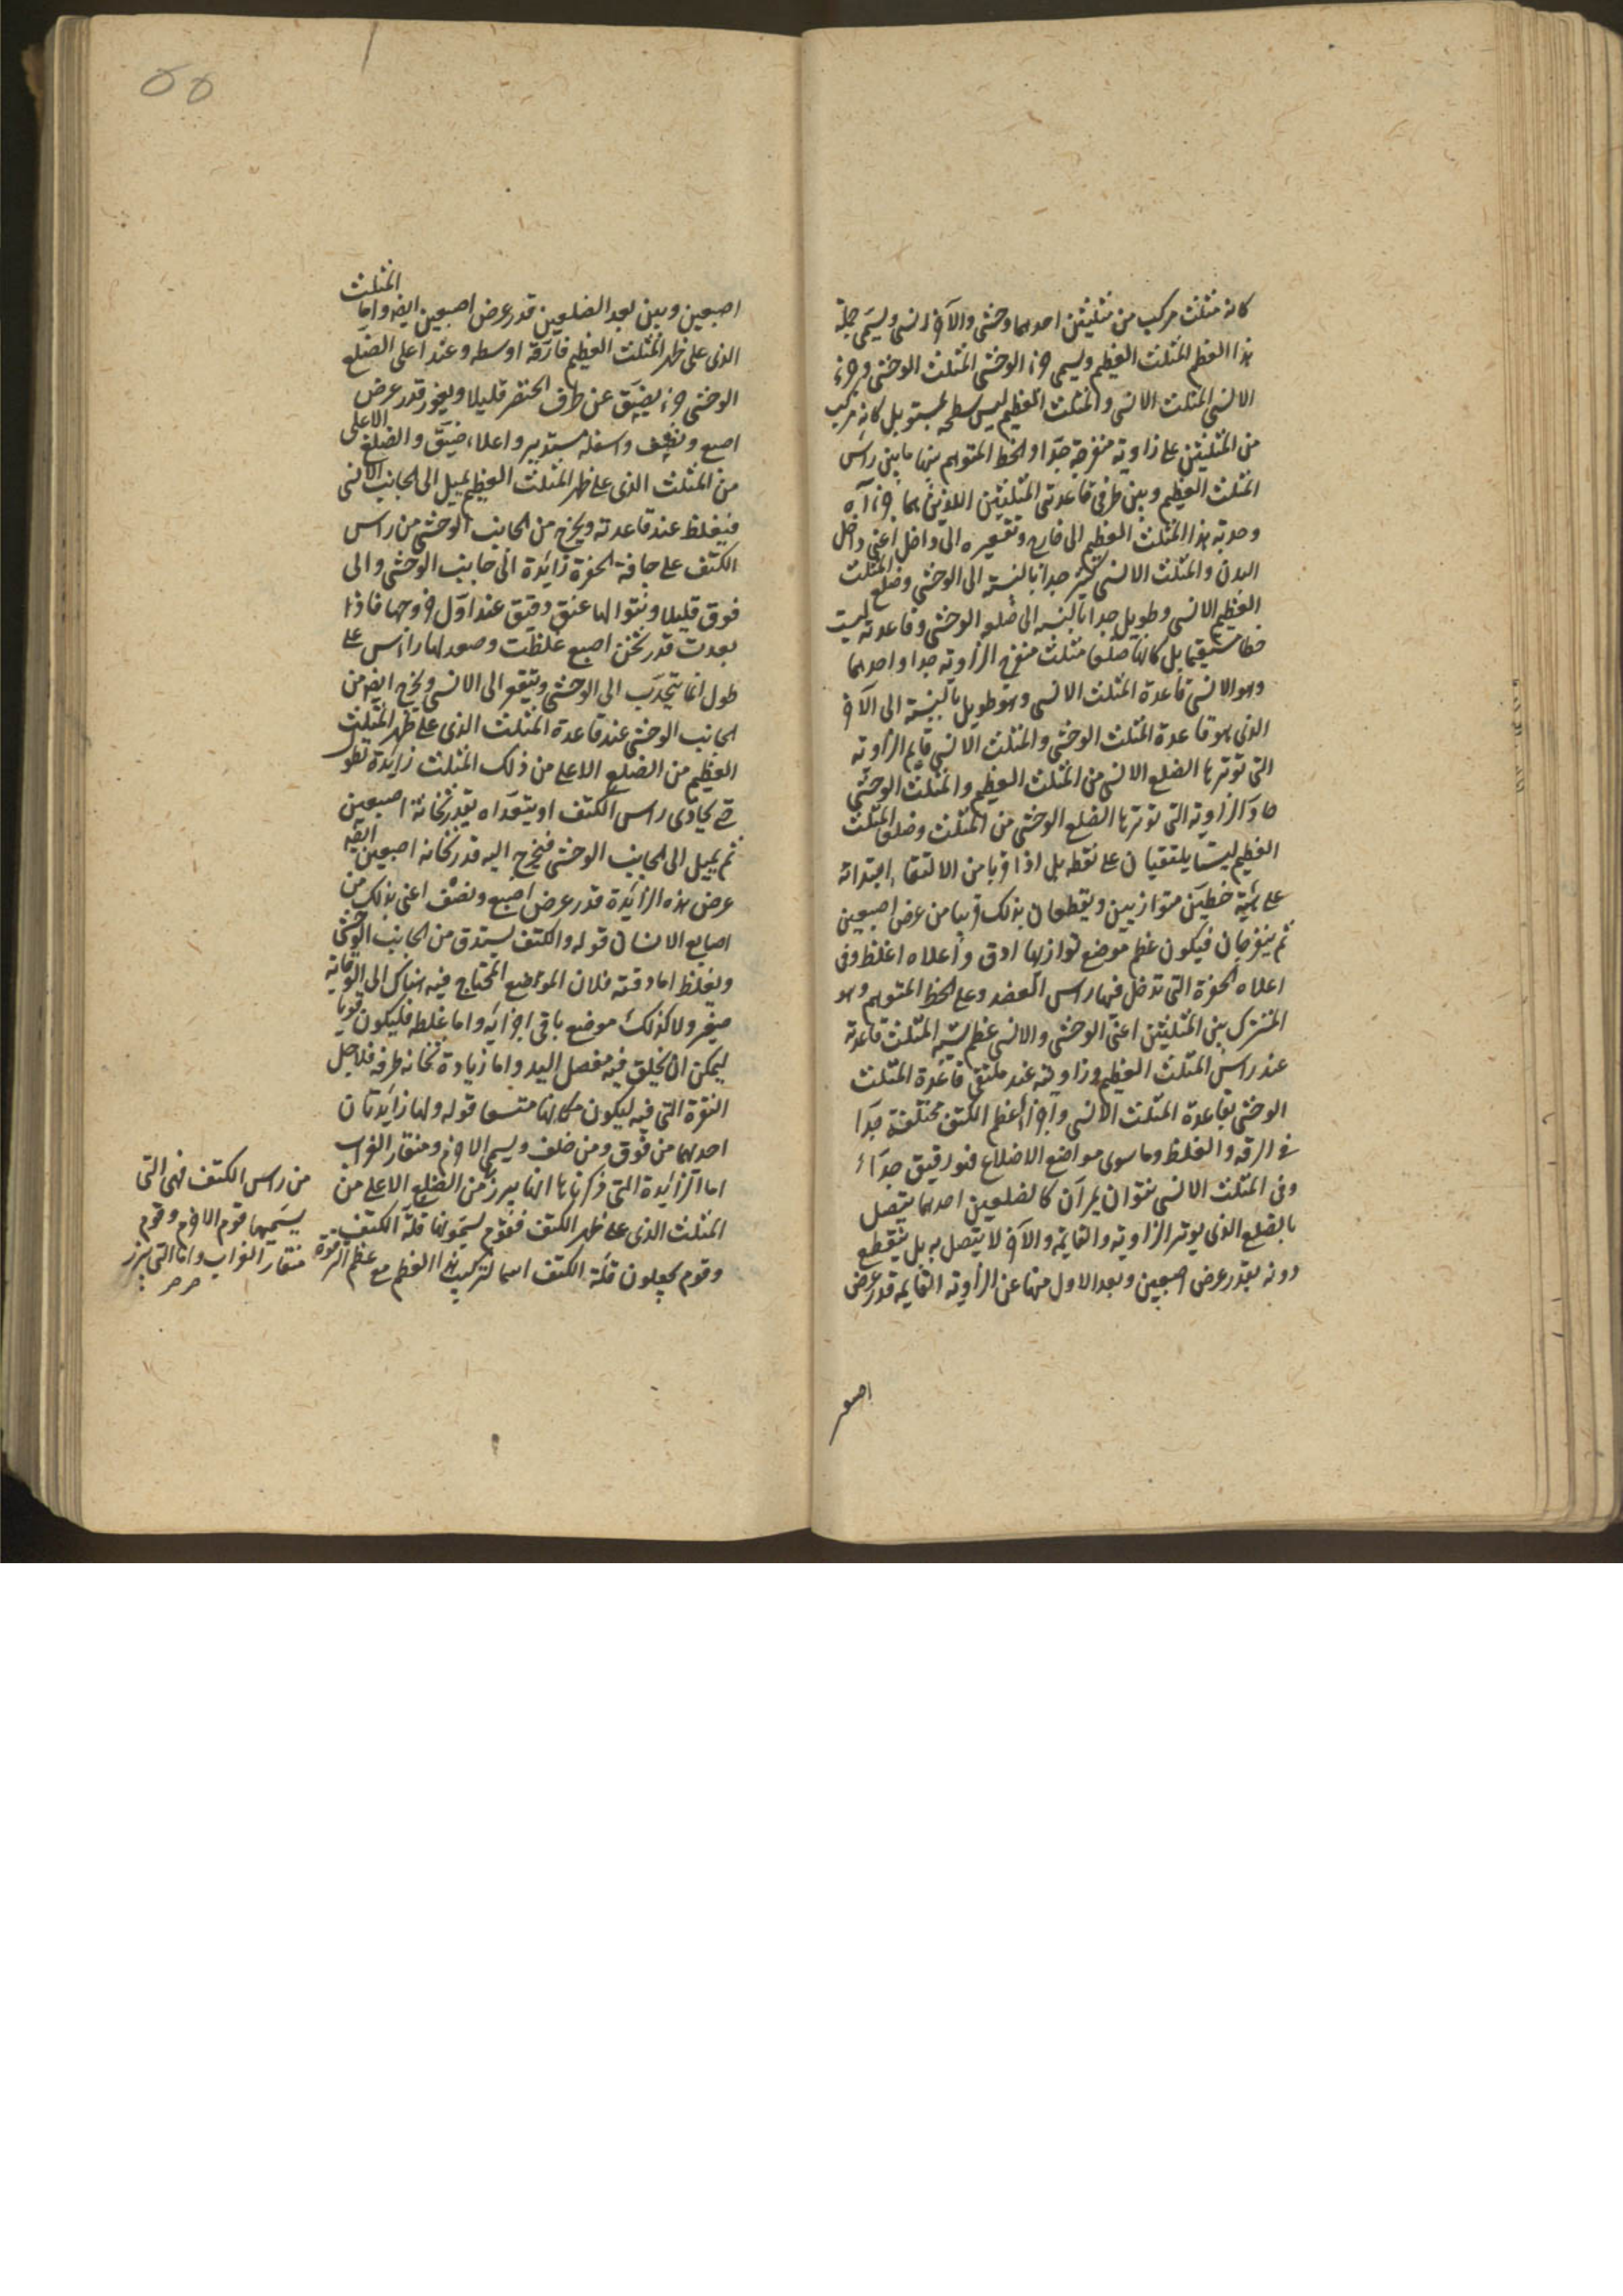 كانه مثلث مركب من مثلثين احدهما وحشى والآخر انسى ويسمى جملة
هذا العظم المثلث العظيم ويسمى جزء الوحشى المثلث الوحشى وجزء
الانسى المثلث الانسى والمثلث العظيم ليس سطحه بمستو بل كانه مركب
من المثلثين على زاوية منفرجة جدا والخط المتوهم بينها ما بين راس
المثلث العظيم وبين طرفى قاعدتى المثلثين اللذين هما جزءآه
وحدبة هذا المثلث العظيم الى خارج وتقعيره الى داخل اعنى داخل
البدن والمثلث الانسى كبير جدا بالنسبة الى الوحشى وضلع المثلث
العظيم الانسى وطويل جدا بالنسبة الى ضلعه الوحشى وقاعدته ليست
خطا مستقيما بل كانها ضلعا مثلث منفرج الزاوية جدا واحدهما
وهو الانسى قاعدة المثلث الانسى وهو طويل بالنسبة الى الآخر
الذى هو قاعدة المثلث الوحشى والمثلث الانسى قايم الزاوية
التى توترها الضلع الانسى من المثلث العظيم والمثلث الوحشى
حاد الزاوية التى توترها الضلع الوحشى من المثلث وضلعا المثلث
العظيم ليسا يلتقيان على نقطه بل اذا قربا من الالتقاء ابتدائه
على هيئة خطين متوازيين ويقطعان بذلك قريبا من عرض اصبعين
ثم ينفرجان فيكون عظم موضع توازيهما ادق واعلاه اغلظ وفى
اعلاه الحفرة التى تدخل فيها راس العضد وعلى الخط المتوهم وهو
المشترك بين المثلثين اعنى الوحشى والانسى عظم يشبه المثلث قاعدته
عند راس المثلث العظيم وزاويته عند ملتقى قاعدة المثلث
الوحشى بقاعدة المثلث الانسى واجزاء عظم الكتف مختلفة جدا
فى الرقه والغلظ وما سوى مواضع الاضلاع فهو رقيق جدا
وفى المثلث الانسى نتوان يمرآن كالضلعين احدهما يتصل
بالضلع الذى يوتر الزاوية والقايمة والآخر لا يتصل به بل ينقطع
دونه بقدر عرض اصبعين وبعد الاول منها عن الزاوية القايمة قدر عرض
اصبعين
اصبعين وبين بعد الضلعين قدر عرض اصبعين ايضا واما المثلث
الذى على ظهر المثلث العظيم فارقه اوسطه وعند اعلى الضلع
الوحشى جزء يضيق عن طرف الخنصر قليلا ويغور قدر عرض
اصبع ونصف واسفله مستدير واعلاه ضيق والضلع الاعلى
من المثلث الذى على ظهر المثلث العظيم يميل الى الجانب الانسى
فيغلظ عند قاعدته ويخرج من الجانب الوحشى من راس
الكتف على حافة الحفرة زائدة الى جانب الوحشى والى
فوق قليلا ونتوا لها عنق دقيق عند اول خروجها فاذا
بعدت قدر ثخن اصبع غلظت وصعد لها راس على
طول انما يتحدب الى الوحشى ويتقعر الى الانسى ويخرج ايضا من
الجانب الوحشى عند قاعدة المثلث الذى على ظهر المثلث
العظيم من الضلع الاعلى من ذلك المثلث زايدة تطول
حتى يحاذى راس الكتف او يتعداه بقدر ثخانة اصبعين
ثم يميل الى الجانب الوحشى فيخرج اليه قدر ثخانه اصبعين ايضا
عرض هذه الزايدة قدر عرض اصبع ونصف اعنى بذلك من
اصابع الانسان قوله والكتف يستدق من الجانب الوحشى
ويغلظ اما دقته فلان المواضع المحتاج فيه هناك الى الوقاية
صغير ولا كذلك موضع باقى اجزائه واما غلظه فليكون قويا
ليمكن ان يخلق فيه مفصل اليد واما زيادة ثخانه طرفه فلاجل
النقرة التى فيه ليكون مكانها متسعا قوله ولها زايدتان
احدهما من فوق ومن خلف ويسمى الاخرم ومنقار الغراب
اما الزايدة التى ذكرناها انها تبرز من الضلع الاعلى من
المثلث الذى على ظهر الكتف فقوم يسمونها قلة الكتف
وقوم يجعلون قلة الكتف اسما لتركيب هذا العظم مع عظم الترقوة
من راس الكتف فهى التى
يسميها قوم الاخرم وقوم
منقار الغراب واما التى تبرز